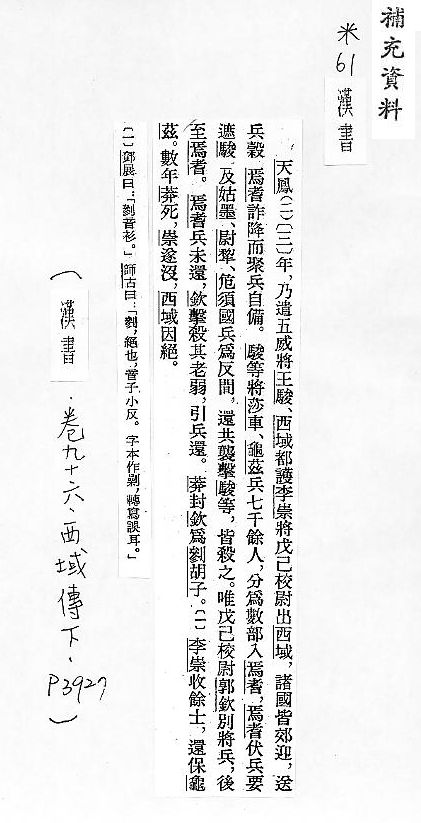 補充資料
米61 漢書
天鳳(二)〔三〕年，乃遣五威將王駿、西域都護李崇將戊己校尉出西域，諸國皆郊迎，送
兵穀。焉耆詐降而聚兵自備。駿等將莎車、龜茲兵七千餘人，分爲數部入焉耆，焉耆伏兵要
遮駿。及姑墨、尉犂、危須國兵爲反間，還共襲擊駿等，皆殺之。唯戊己校尉郭欽別將兵，後
至焉耆。焉耆兵未還，欽擊殺其老弱，引兵還。莽封欽爲剗胡子。〔一〕李崇收餘士，還保龜
茲。數年莽死，崇遂沒，西域因絕。
〔一〕鄧展曰：「剗音衫。」師古曰：「剗，絕也，音子小反。字本作剿，轉寫誤耳。」
（漢書．卷九十六．西域傳下．P3927）